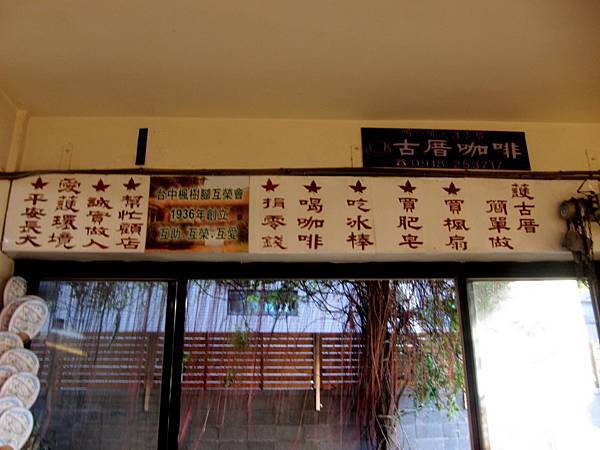 古厝咖啡
0918 253717
護古厝
簡單做
★買楓扇
★買肥皂
★吃冰棒
★喝咖啡
★捐零錢
台中楓樹腳互榮會
1936年創立
互助、互榮、互愛
★幫忙顧店
★誠實做人
愛護環境
★平安長大